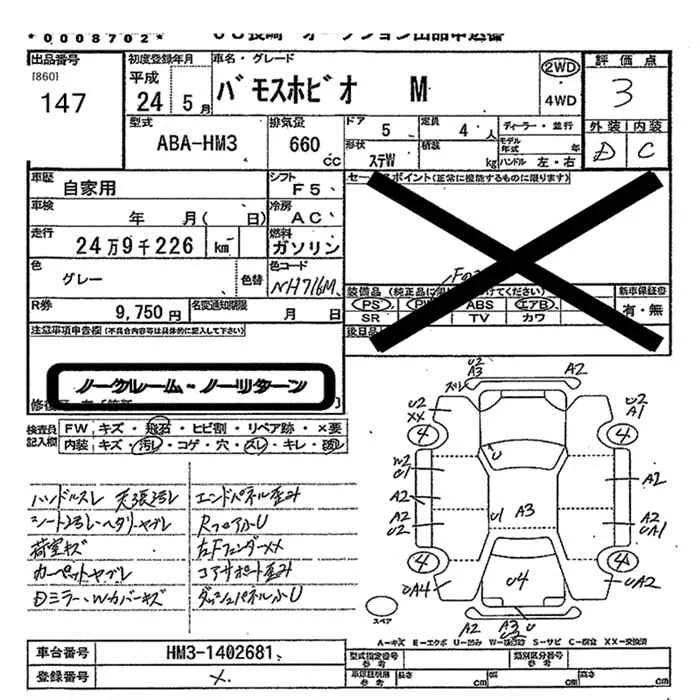 *0008702*
出品番号 [860] 147
初度登録年月 平成 24 5月
車名・グレード バモスホビオ M
2WD ・4WD
評価点 3
外装 D 内装 C
型式 ABA-HM3
排気量 660 CC
ドア 5 定員 4 人
形状 ステW 積載 kg
ディーラー・並行
モデル年式 年
ハンドル 左・右
車歴 自家用
シフト F5
車検 年 月( 日)
冷房 AC
走行 24万9千226 km
燃料 ガソリン
色 グレー 色替
色コード NH716M
R券 9,750円
名変通知期限 月 日
セールスポイント(正常に機能するものに限ります)
装備品
PS ABS エアB
SR TV カワ
新車保証書 有・無
後日品
注意事項申告欄(不具合内容等は具体的に記入して下さい)
ノークレーム・ノーリターン
検査員記入欄
FW キズ・飛石・ヒビ割・リペア跡・×要
内装 キズ・汚レ・コゲ・穴・スレ・キレ・破レ
ハンドルスレ 天張汚レ
エンドパネル歪み
シート汚レ・ヘタリ・ヤブレ
RフロアふU
荷室キズ
左FフェンダーXX
カーペットヤブレ
コアサポート歪み
Dミラー・Wカバーキズ
ダッシュパネルふU
U2 A3
スレ
A2
U2 XX
U2 A1
4
4
U
W2
A2
A2 U2
A1
A2 UA1
U1
A3
4
4
UA4
U4
UA2
A2
A3
U
スペア
A-キズ E-エクボ U-凹み S-サビ C-腐食 XX-交換済
車台番号 HM3-1402681
登録番号 ×
型式指定番号 参考
類別区分番号 参考
車検証明細 参考 長さ cm 幅 cm 高さ cm